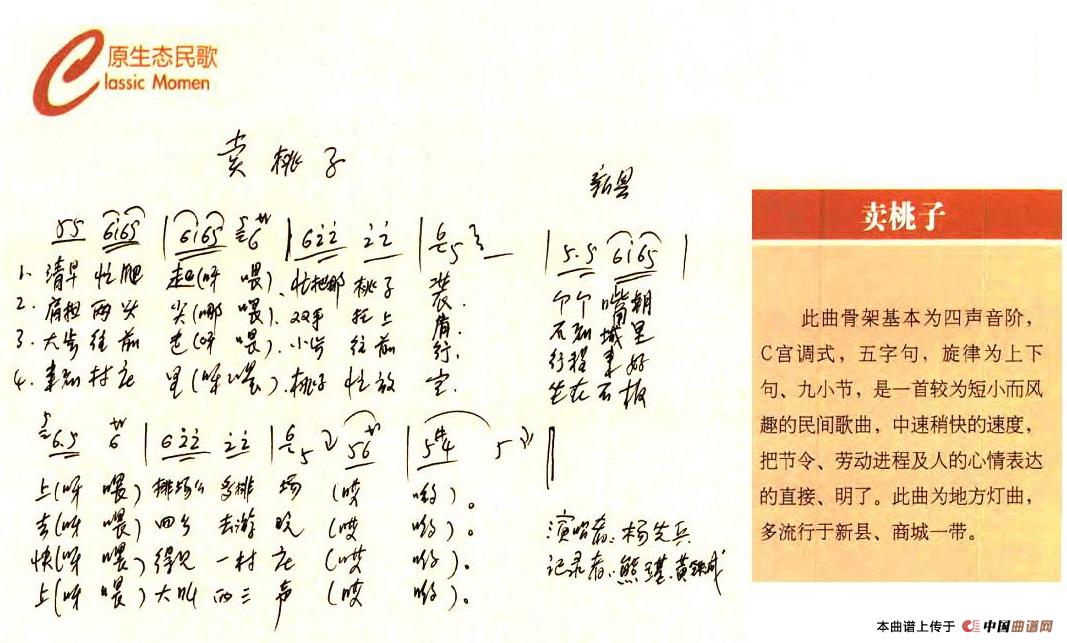 原生态民歌
Classic Momen
卖桃子
新县
5 5 6i65 | 6i65 6 | 6 2 2 2 2 | 6 5 3 | 5. 5 6i65 |
1. 清早忙爬起(呀 喂). 忙把那桃子装. 个个嘴朝
2. 肩担两头尖(哪 喂). 双手托上肩. 不知城里
3. 大步往前走(呀 喂). 小步往前行. 行程来好
4. 来到村庄里(呀 喂). 桃子忙放 生在石板
6.5 6 | 6 2 2 2 2 | 6 5 5 6 | 5 #4 5 ‖
上(呀 喂) 排场 排场 (哎 哟)。
去(呀 喂) 四 去游 (哎 哟)。
快(呀 喂) 得见一村庄 (哎 哟)。
上(呀 喂) 大叫两三声 (哎 哟)。
演唱者: 杨先兵
记录者: 熊璂 黄铁成
卖桃子
此曲骨架基本为四声音阶,
C宫调式,五字句,旋律为上下
句、九小节,是一首较为短小而风
趣的民间歌曲,中速稍快的速度,
把节令、劳动进程及人的心情表达
的直接、明了。此曲为地方灯曲,
多流行于新县、商城一带。
本曲谱上传于 中国曲谱网